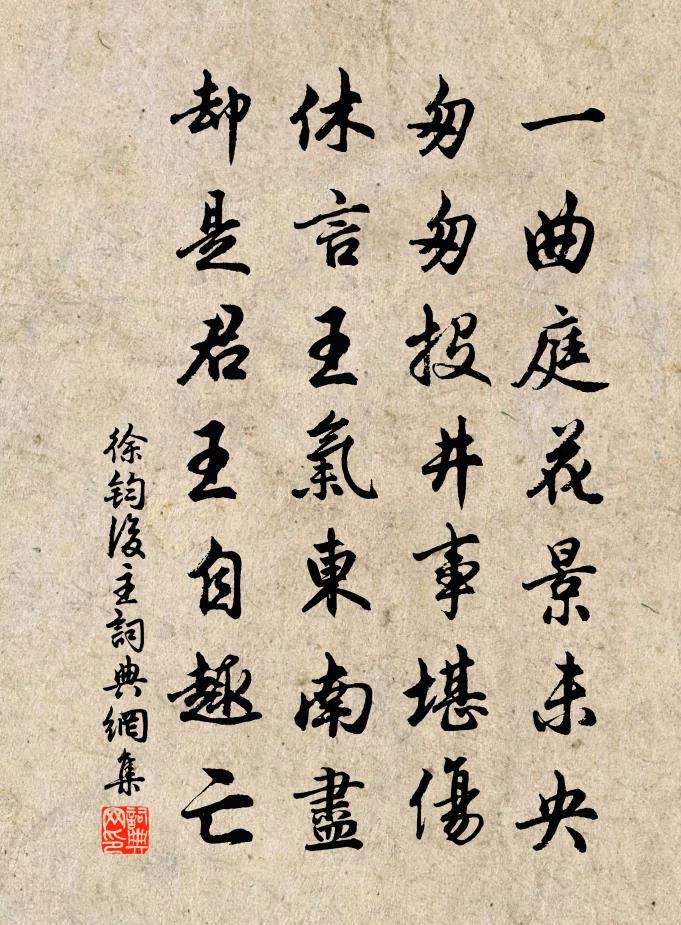 一曲庭花景未央
匆匆投井事堪傷
休言王氣東南盡
却是君王自趣亡
徐鈞後主詞典網集
詞典网印